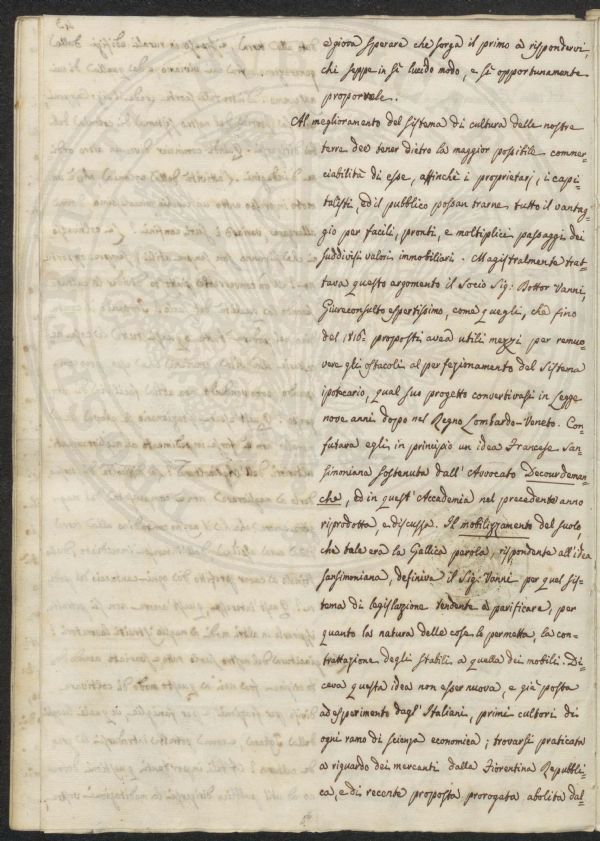 e giova sperare che sorga il primo a rispondervi,
chi seppe in sì lucido modo, e sì opportunamente
proporvele.
Al meglioramento del sistema di cultura delle nostre
terre dee tener dietro la maggior possibile commer-
ciabilità di esse, affinchè i proprietarj, i capi-
talisti, ed il pubblico possan trarne tutto il vantag-
gio per facili, pronti, e moltiplici passaggi dei
suddivisi valori immobiliari. Magistralmente trat-
tava questo argomento il Socio Sig: Dottor Vanni,
Giureconsulto espertissimo, come quegli, che fino
del 1816. proposti avea utili mezzi per remuo-
vere gli ostacoli al perfezionamento del Sistema
ipotecario, qual suo progetto convertivasi in Legge
nove anni dopo nel Regno Lombardo-Veneto. Con-
futava egli in principio un idea Francese San-
simoniana sostenuta dall'Avvocato Decourdeman-
che, ed in quest'Accademia nel precedente anno
riprodotta, e discussa. Il mobilizzamento del suolo,
che tale era la Gallica parola, rispondente all'idea
sansimoniana, definiva il Sig: Vanni per quel sis-
tema di legislazione tendente a parificare, per
quanto la natura delle cose lo permetta, la con-
trattazione degli stabili a quella dei mobili. Di-
ceva questa idea non esser nuova, e già posta
ad esperimento dagl'Italiani, primi cultori di
ogni ramo di scienza economica; trovarsi praticata
a riguardo dei mercanti dalla Fiorentina Repubbli-
ca, e di recente proposta prorogata abolita dal-